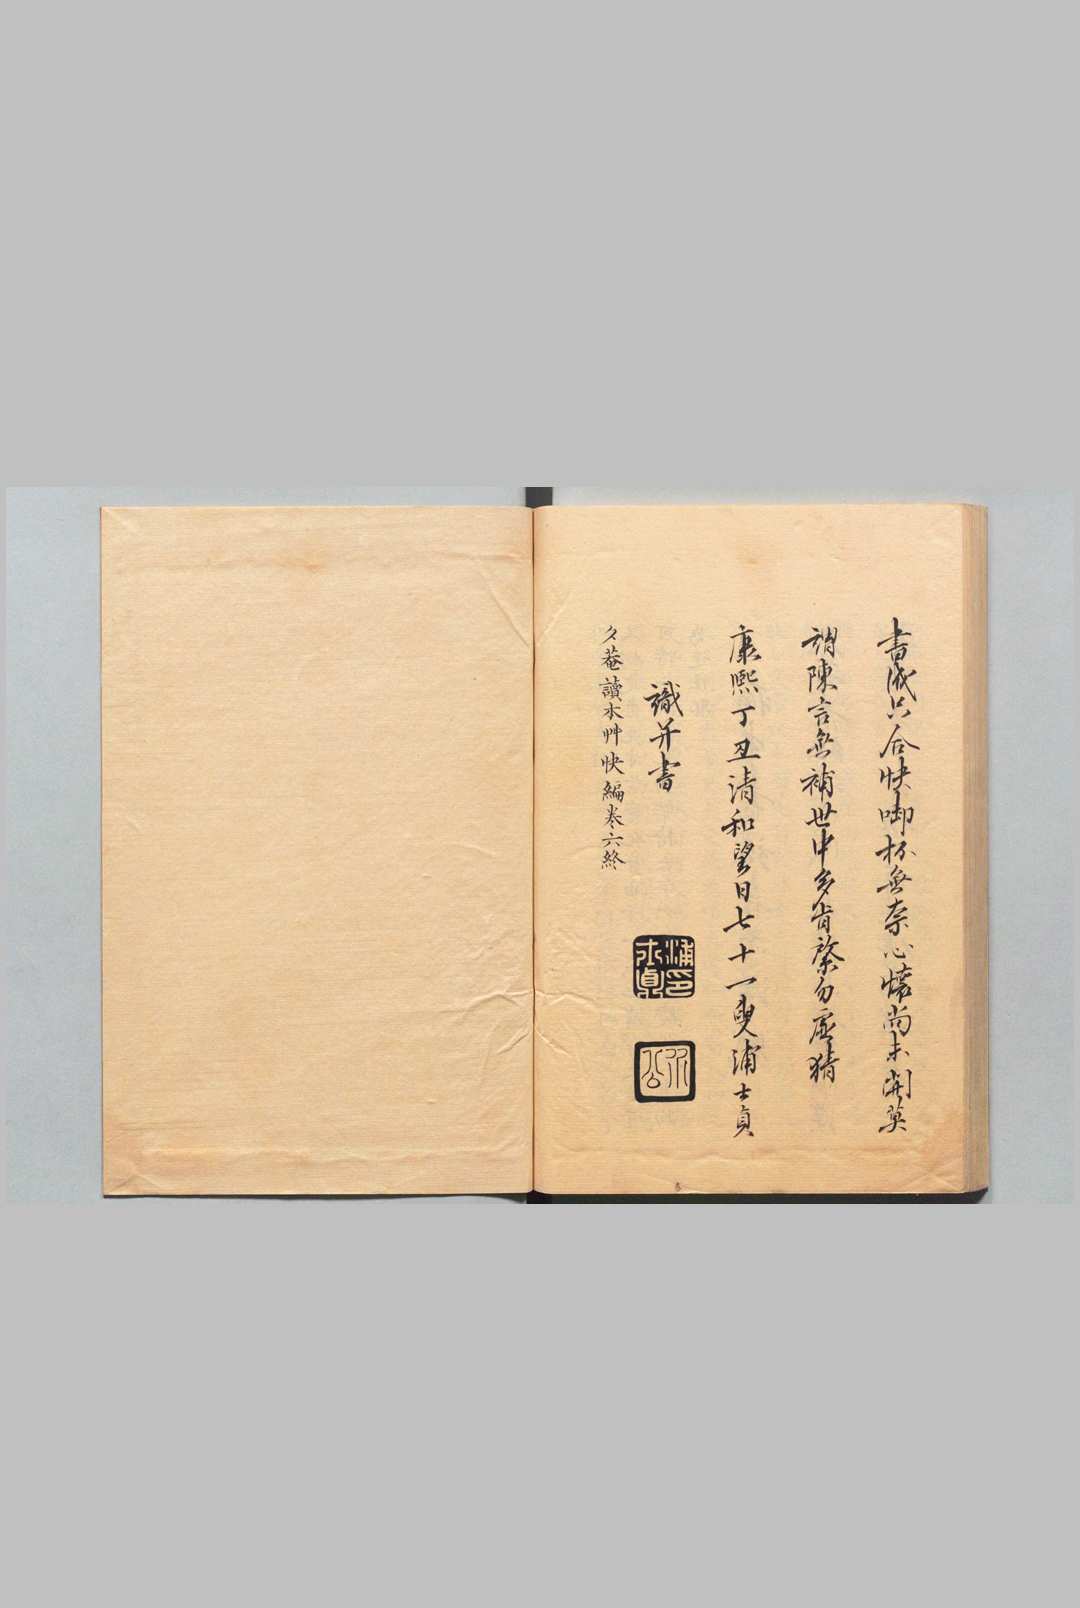 書成只合快啣杯無奈心懷尚未開莫
謂陳言無補世中多肯綮勿虛猜
康熙丁丑清和望日七十一叟浦士貞
識并書
夕菴讀本艸快編卷六終
浦印士貞